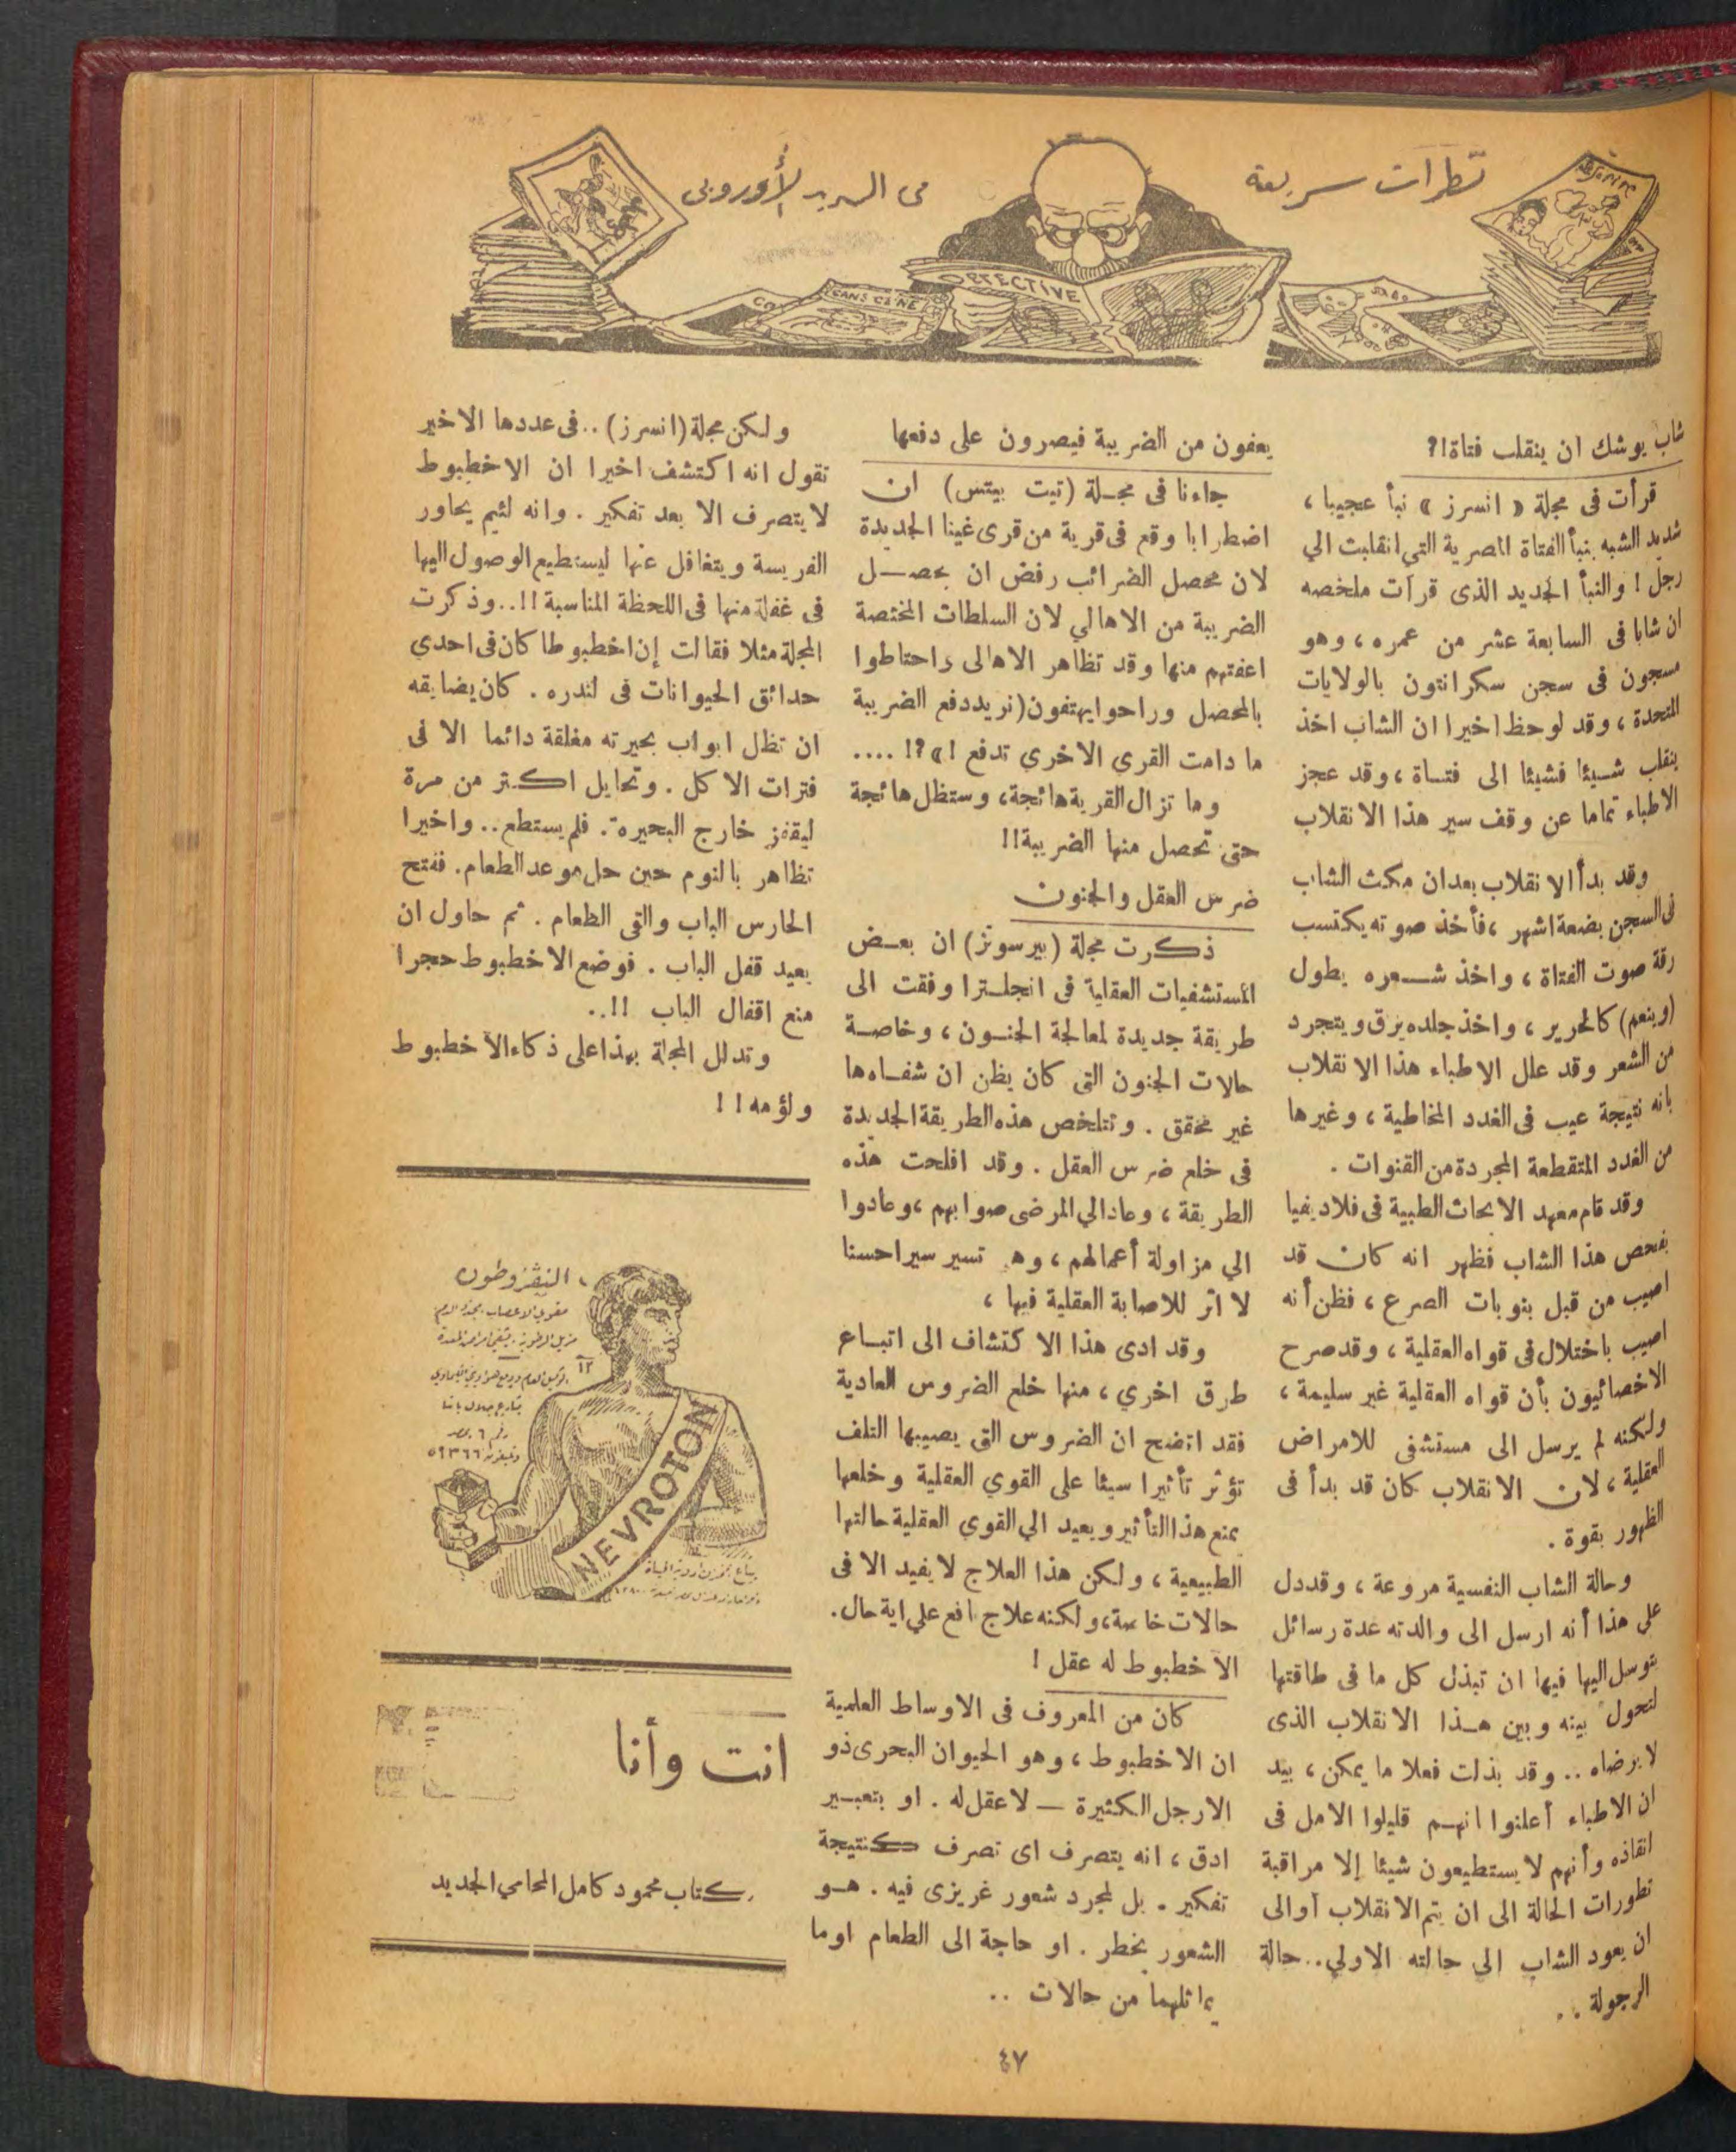 نظرات سريعة
في البريد الأوروبي
DETECTIVE
شاب يوشك ان ينقلب فتاة!؟
قرأت فى مجلة « انسرز » نبأ عجيبا ،
شديد الشبه بنبأ الفتاة المصرية التي انقلبت الي
رجل ! والنبأ الجديد الذى قرأت ملخصه
ان شابا فى السابعة عشر من عمره ، وهو
مسجون فى سجن سكرانتون بالولايات
المتحدة ، وقد لوحظ اخيرا ان الشاب اخذ
ينقلب شيئا فشيئا الى فتاة ، وقد عجز
الاطباء تماما عن وقف سير هذا الانقلاب
وقد بدأ الانقلاب بعد ان مكث الشاب
فى السجن بضعة اشهر ، فأخذ صوته يكتسب
رقة صوت الفتاة ، واخذ شعره يطول
(وينعم) كالحرير ، واخذ جلده يرق ويتجرد
من الشعر وقد علل الاطباء هذا الانقلاب
بانه نتيجة عيب فى الغدد المخاطية ، وغيرها
من الغدد المتقطعة المجردة من القنوات .
وقد قام معهد الابحاث الطبية فى فلاديفيا
بفحص هذا الشاب فظهر انه كان قد
اصيب من قبل بنوبات الصرع ، فظن أنه
اصيب باختلال فى قواه العقلية ، وقد صرح
الاخصائيون بأن قواه العقلية غير سليمة ،
ولكنه لم يرسل الى مستشفى للامراض
العقلية ، لان الانقلاب كان قد بدأ فى
الظهور بقوة .
وحالة الشاب النفسية مروعة ، وقد دل
على هذا أنه ارسل الى والدته عدة رسائل
يتوسل اليها فيها ان تبذل كل ما فى طاقتها
لتحول بينه وبين هذا الانقلاب الذى
لا يرضاه .. وقد بذلت فعلا ما يمكن ، بيد
ان الاطباء أعلنوا انهم قليلوا الامل فى
انقاذه وأنهم لا يستطيعون شيئا إلا مراقبة
تطورات الحالة الى ان يتم الانقلاب أو الى
ان يعود الشاب الى حالته الاولي.. حالة
الرجولة . .
يعفون من الضريبة فيصرون على دفعها
جاءنا فى مجلة (تيت بيتس) ان
اضطرابا وقع فى قرية من قرى غينا الجديدة
لان محصل الضرائب رفض ان يحصل
الضريبة من الاهالي لان السلطات المختصة
اعفتهم منها وقد تظاهر الاهالى واحتاطوا
بالمحصل وراحوا يهتفون (نريد دفع الضريبة
ما دامت القري الاخري تدفع !» ?! ....
وما تزال القرية هائجة، وستظل هائجة
حتى تحصل منها الضريبة!!
ضرس العقل والجنون
ذكرت مجلة (بيرسونز) ان بعض
المستشفيات العقلية فى انجلترا وفقت الى
طريقة جديدة لمعالجة الجنون ، وخاصة
حالات الجنون التى كان يظن ان شفاءها
غير محقق . وتتلخص هذه الطريقة الجديدة
فى خلع ضرس العقل . وقد افلحت هذه
الطريقة ، وعاد الي المرضى صوابهم ، وعادوا
الي مزاولة أعمالهم ، وهى تسير سيرا حسنا
لا اثر للاصابة العقلية فيها ،
وقد ادى هذا الاكتشاف الى اتباع
طرق اخري ، منها خلع الضروس العادية
فقد اتضح ان الضروس التى يصيبها التلف
تؤثر تأثيرا سيئا على القوي العقلية وخلعها
يمنع هذا التأثير ويعيد الي القوي العقلية حالتها
الطبيعية ، ولكن هذا العلاج لا يفيد الا فى
حالات خاصة، ولكنه علاج نافع علي اية حال.
الاخطبوط له عقل !
كان من المعروف فى الاوساط العلمية
ان الاخطبوط ، وهو الحيوان البحرى ذو
الارجل الكثيرة — لا عقل له . او بتعبير
ادق ، انه يتصرف اى تصرف كنتيجة
تفكير . بل لمجرد شعور غريزى فيه . هو
الشعور بخطر . او حاجة الى الطعام او ما
يماثلهما من حالات ..
ولكن مجلة (انسرز) .. فى عددها الاخير
تقول انه اكتشف اخيرا ان الاخطبوط
لا يتصرف الا بعد تفكير . وانه لئيم يحاور
الفريسة ويتغافل عنها ليستطيع الوصول اليها
فى غفلة منها فى اللحظة المناسبة !!.. وذكرت
المجلة مثلا فقالت إن اخطبوطا كان فى احدي
حدائق الحيوانات فى لندره . كان يضايقه
ان تظل ابواب بحيرته مغلقة دائما الا فى
فترات الاكل . وتحايل اكثر من مرة
ليقفز خارج البحيرة . فلم يستطع .. واخيرا
تظاهر بالنوم حين حل موعد الطعام. ففتح
الحارس الباب والقى الطعام . ثم حاول ان
يعيد قفل الباب . فوضع الاخطبوط حجرا
منع اقفال الباب !!..
وتدلل المجلة بهذا على ذكاء الاخطبوط
ولؤمه ! !
النيڤروطون
مقوي الاعصاب
١٢
شارع جلال باشا
رقم ٦ بمصر
تليفون ٥٩٣٦٦
NEVROTON
انت وأنا
كتاب محمود كامل المحامي الجديد
٤٧